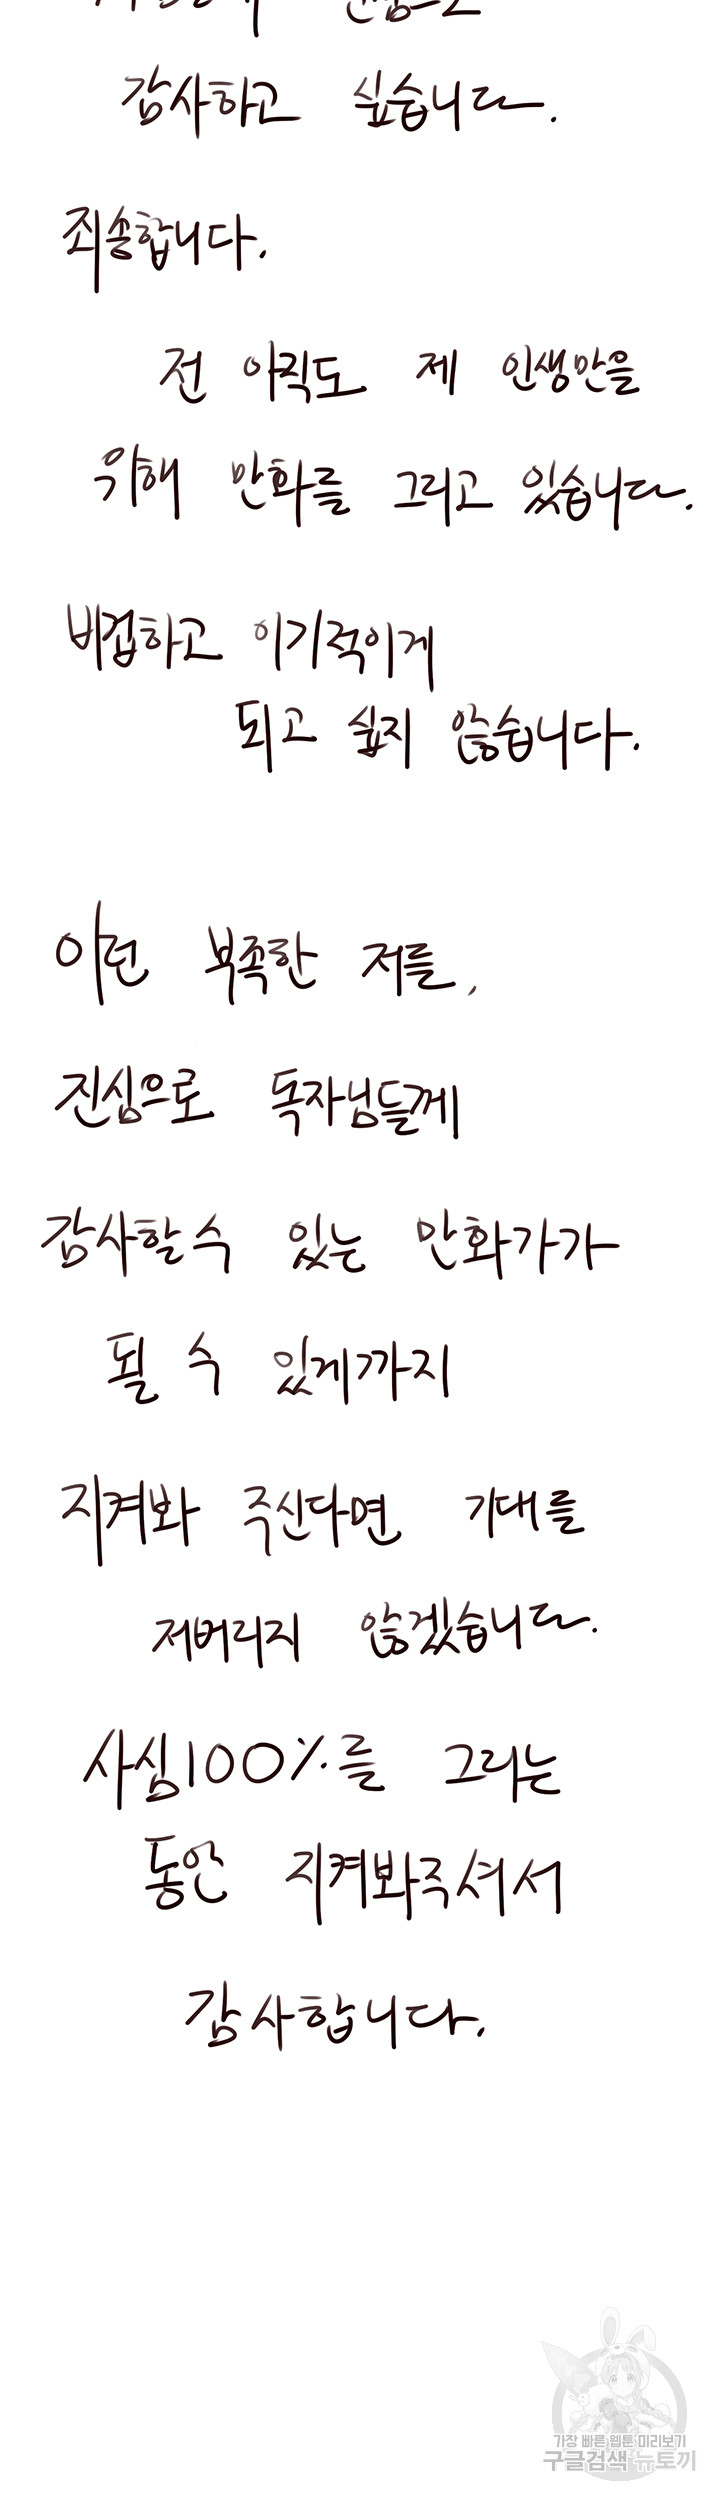 감사하고 싶습니다.
죄송합니다.
전 아직도 제 인생만을
위해 만화를 그리고 있습니다.
변명하고 이기적이게
되고 싶지 않습니다.
이런 부족한 저를,
진심으로 독자님들께
감사할 수 있는 만화가가
될 수 있을 때까지
지켜봐 주신다면 기대를
저버리지 않겠습니다.
사심 100%를 그리는
동안 지켜봐주셔서
감사합니다.
가장 빠른 웹툰 미리보기
구글검색 뉴토끼